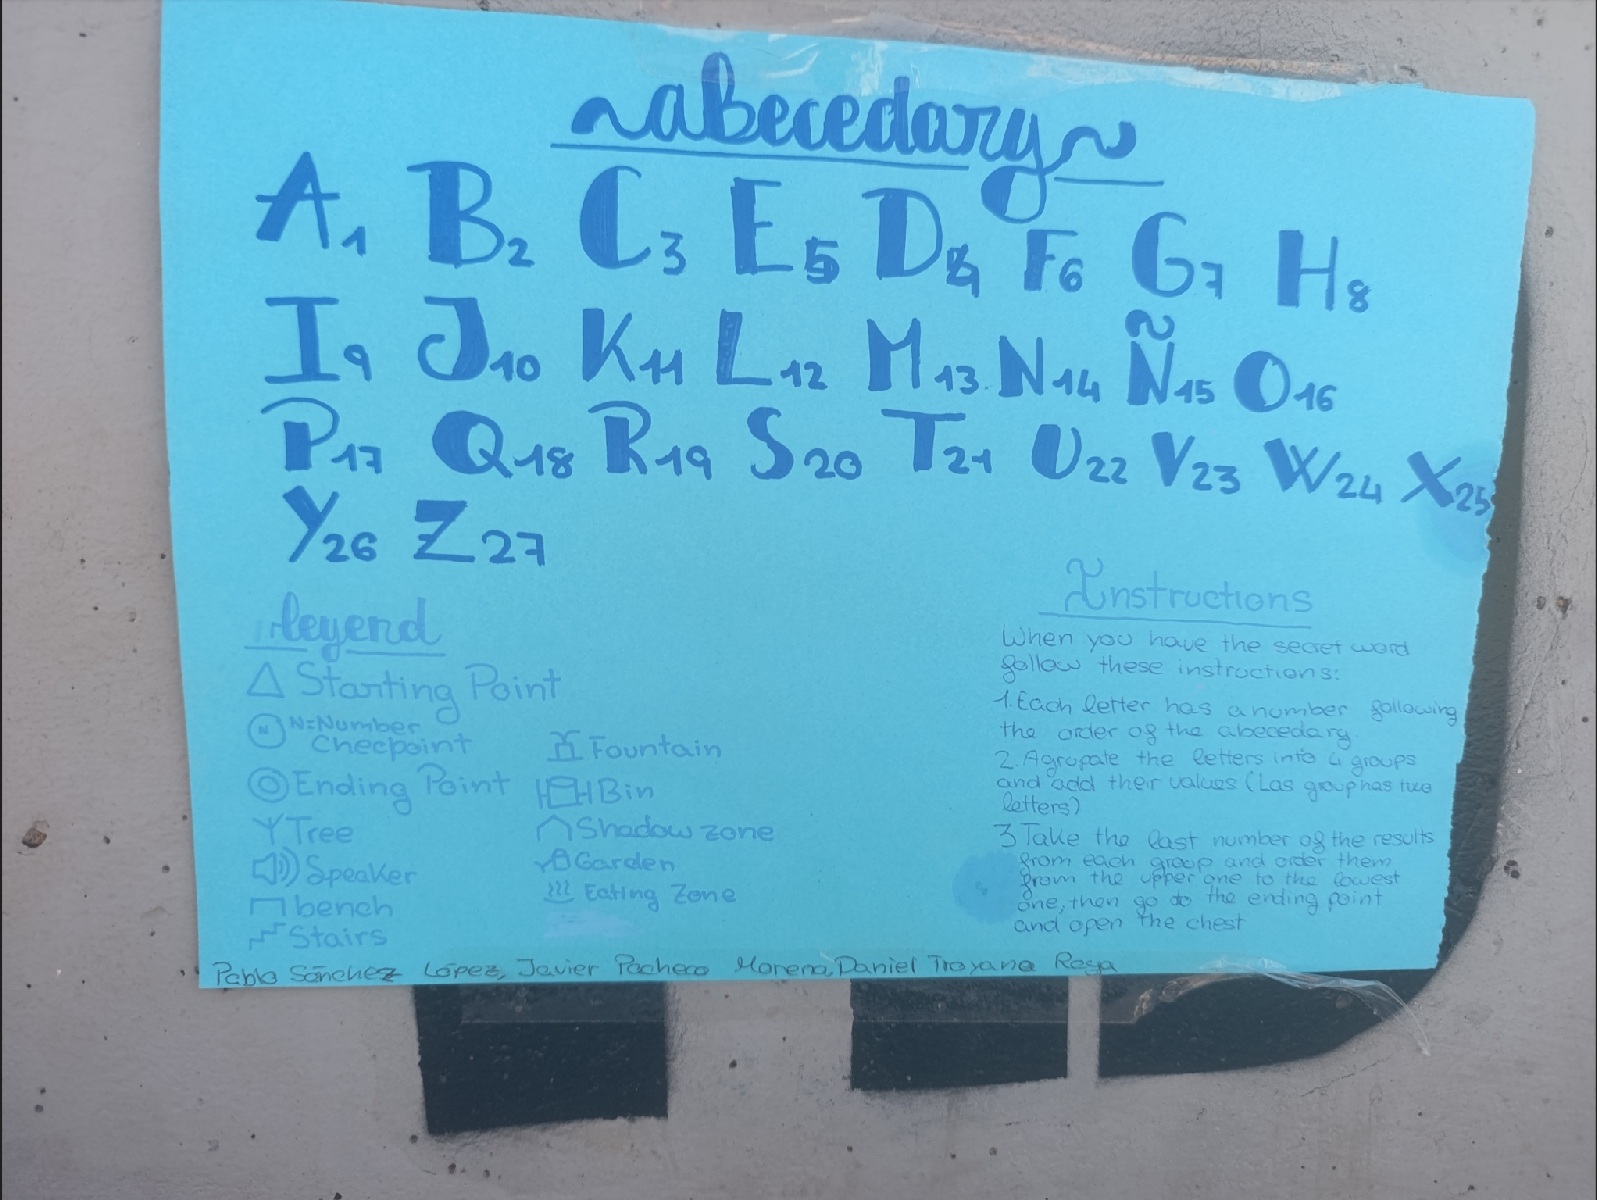 ~abecedary~
A1 B2 C3 E5 D4 F6 G7 H8
I9 J10 K11 L12 M13 N14 Ñ15 O16
P17 Q18 R19 S20 T21 U22 V23 W24 X25
Y26 Z27
legend
Starting Point
N N=Number
Checpoint
Ending Point
Tree
Speaker
bench
Stairs
Fountain
Bin
Shadow zone
Garden
Eating Zone
Instructions
When you have the secret word
follow these instructions:
1. Each letter has a number following
the order of the abecedary.
2. Agrupate the letters into 4 groups
and add their values (Las group has two
letters)
3 Take the last number of the results
from each group and order them
from the upper one to the lowest
one, then go do the ending point
and open the chest
Pablo Sánchez López, Javier Pacheco Moreno, Daniel Troyano Rosa